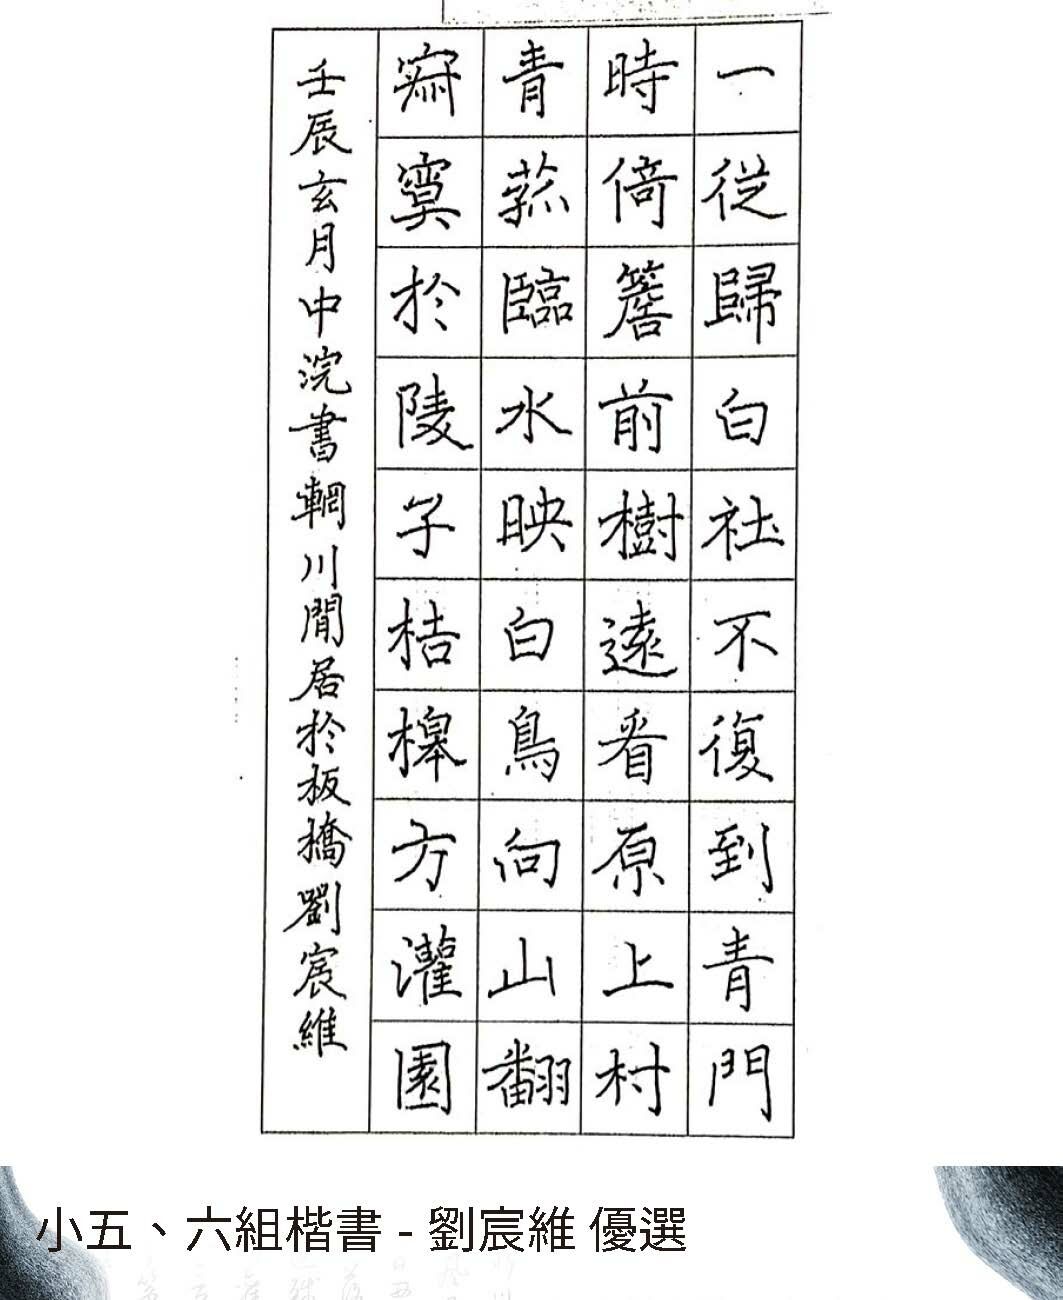 一從歸白社不復到青門
時倚簷前樹遠看原上村
青菰臨水映白鳥向山翻
寂寞於陵子桔槔方灌園
壬辰玄月中浣書輞川閒居於板橋劉宸維
小五、六組楷書 - 劉宸維 優選